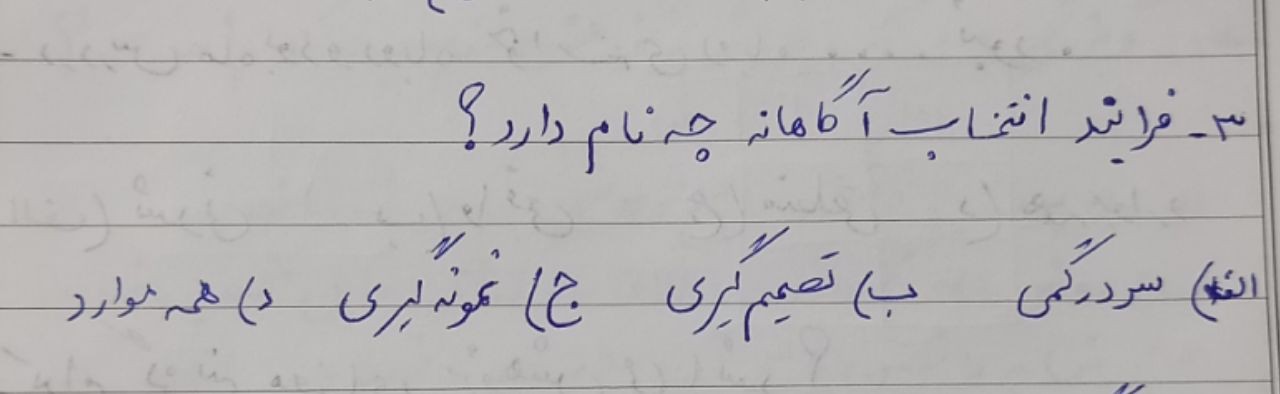 ۳- فرایند انتخاب آگاهانه چه نام دارد؟
الف) سردرگمی ب) تصمیم گیری ج) نمونه گیری د) همه موارد